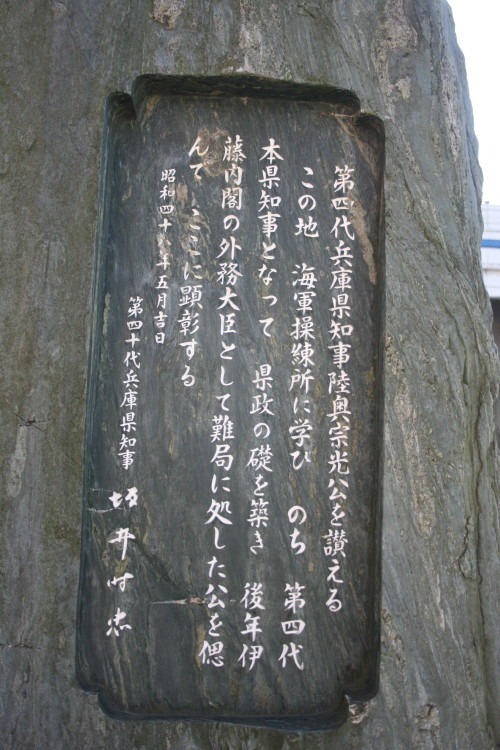 第四代兵庫県知事陸奥宗光公を讃える
この地　海軍操練所に学び　のち　第四代
本県知事となって　県政の礎を築き　後年伊
藤内閣の外務大臣として難局に処した公を偲
んで　ここに顕彰する
昭和四十八年五月吉日
第四十代兵庫県知事
坂井时忠